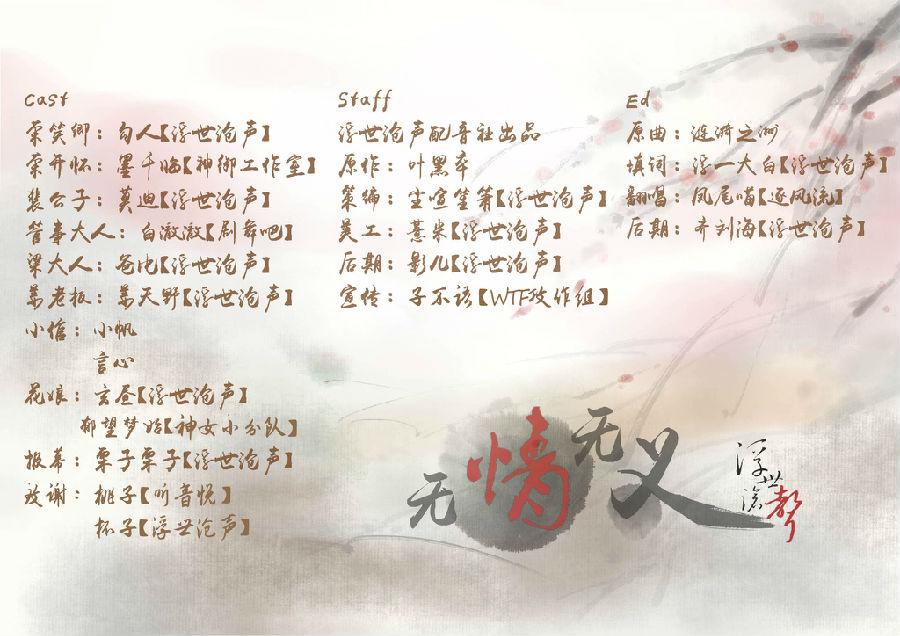 Cast
栾笑卿：白人【浮世沧声】
栾开怀：墨千临【神御工作室】
裴公子：莫迪【浮世沧声】
管事大人：白激激【刷舞吧】
梁大人：爸比【浮世沧声】
万老板：万天野【浮世沧声】
小倌：小帆
言心
花娘：玄昼【浮世沧声】
郁望梦始【神女小分队】
报幕：栗子栗子【浮世沧声】
致谢：桃子【听音悦】
杯子【浮世沧声】
Staff
浮世沧声配音社出品
原作：叶黑本
策编：尘喧笙箫【浮世沧声】
美工：薏米【浮世沧声】
后期：影儿【浮世沧声】
宣传：子不语【WTF效作组】
Ed
原曲：涟漪之洲
填词：浮一大白【浮世沧声】
翻唱：凤尾喵【逐风流】
后期：齐刘海【浮世沧声】
无情无义
浮世滄聲